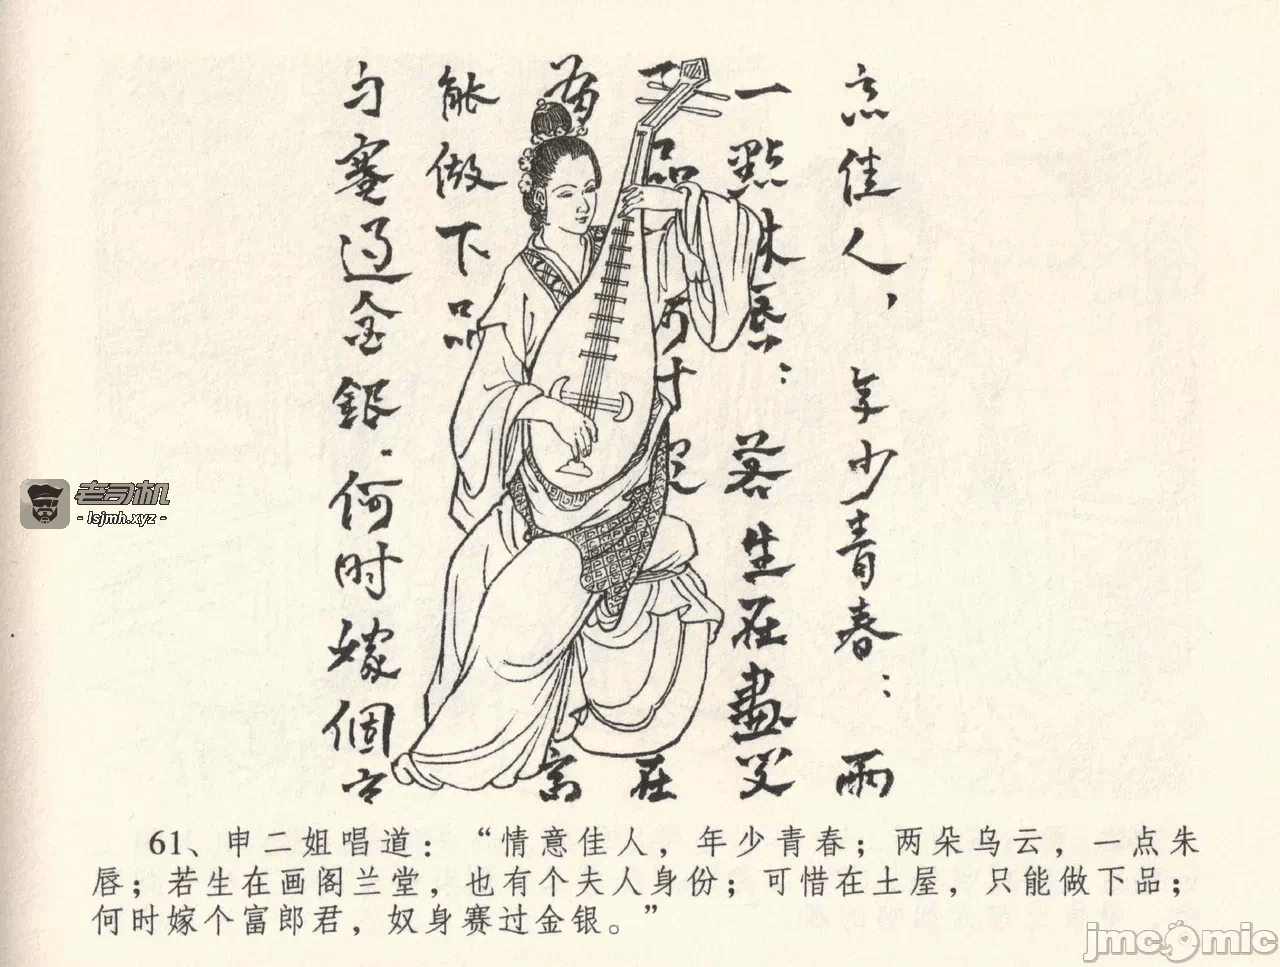 佳人，年少青春：兩
一點朱唇：若生在畫
品 在
能做下品
賽過金銀.何時嫁個
61、申二姐唱道：“情意佳人，年少青春；两朵乌云，一点朱
唇；若生在画阁兰堂，也有个夫人身份；可惜在土屋，只能做下品；
何时嫁个富郎君，奴身赛过金银。”
老司机
- lsjmh.xyz -
jmcomic